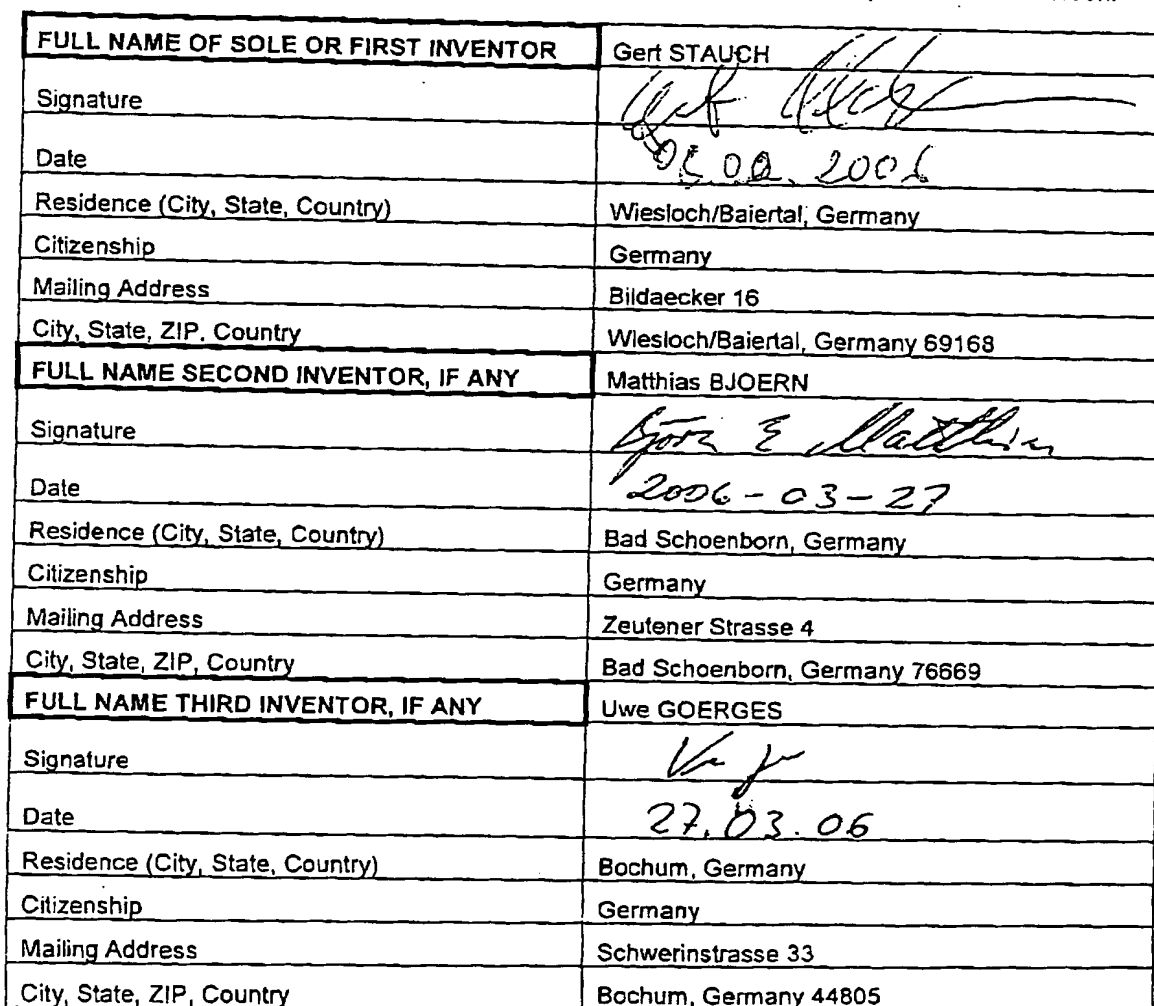 FULL NAME OF SOLE OR FIRST INVENTOR Gert STAUCH
Signature
Date 2006
Residence (City, State, Country) Wiesloch/Baiertal, Germany
Citizenship Germany
Mailing Address Bildaecker 16
City, State, ZIP, Country Wiesloch/Baiertal, Germany 69168
FULL NAME SECOND INVENTOR, IF ANY Matthias BJOERN
Signature Björn E Matthias
Date 2006-03-27
Residence (City, State, Country) Bad Schoenborn, Germany
Citizenship Germany
Mailing Address Zeutener Strasse 4
City, State, ZIP, Country Bad Schoenborn, Germany 76669
FULL NAME THIRD INVENTOR, IF ANY Uwe GOERGES
Signature
Date 27.03.06
Residence (City, State, Country) Bochum, Germany
Citizenship Germany
Mailing Address Schwerinstrasse 33
City, State, ZIP, Country Bochum, Germany 44805